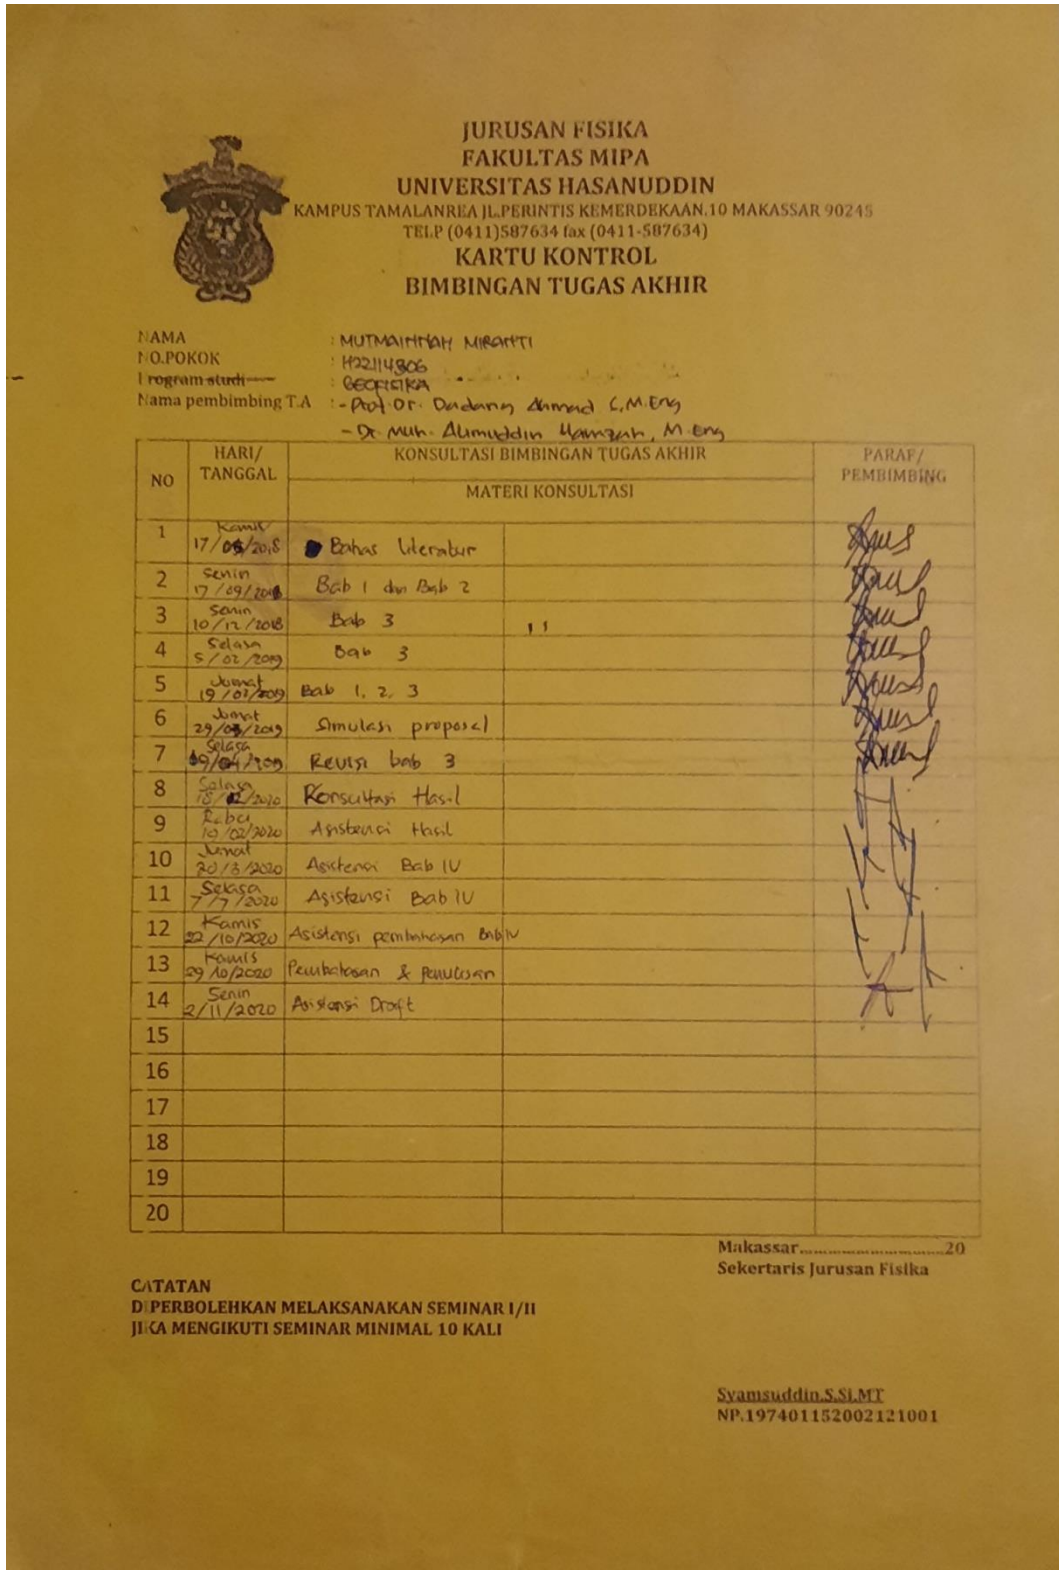 JURUSAN FISIKA
FAKULTAS MIPA
UNIVERSITAS HASANUDDIN
KAMPUS TAMALANREA JL.PERINTIS KEMERDEKAAN.10 MAKASSAR 90245
TELP (0411)587634 fax (0411-587634)
KARTU KONTROL
BIMBINGAN TUGAS AKHIR
NAMA : MUTMAINNAH MIRANTI
NO.POKOK : H22114306
Program studi : GEOFISIKA
Nama pembimbing T.A : - Prof. Dr. Dadang Ahmad S, M.Eng
- Dr. Muh. Alimuddin Hamzah, M.Eng
NO HARI/ TANGGAL KONSULTASI BIMBINGAN TUGAS AKHIR PARAF/ PEMBIMBING
MATERI KONSULTASI
1 Kamis 17/05/2018 Bahas literatur
2 Senin 17/09/2018 Bab 1 dan Bab 2
3 Senin 10/12/2018 Bab 3
4 Selasa 5/02/2019 Bab 3
5 Jumat 19/03/2019 Bab 1, 2, 3
6 Jumat 29/03/2019 Simulasi proposal
7 Selasa 09/04/2019 Revisi bab 3
8 Selasa 18/02/2020 Konsultasi Hasil
9 Rabu 19/02/2020 Asistensi Hasil
10 Jumat 20/3/2020 Asistensi Bab IV
11 Selasa 7/7/2020 Asistensi Bab IV
12 Kamis 22/10/2020 Asistensi pembahasan Bab IV
13 Kamis 29/10/2020 &
14 Senin 2/11/2020 Asistensi Draft
15
16
17
18
19
20
Makassar..............................20
Sekertaris Jurusan Fisika
CATATAN
DIPERBOLEHKAN MELAKSANAKAN SEMINAR I/II
JIKA MENGIKUTI SEMINAR MINIMAL 10 KALI
Syamsuddin.S.Si.MT
NP.197401152002121001